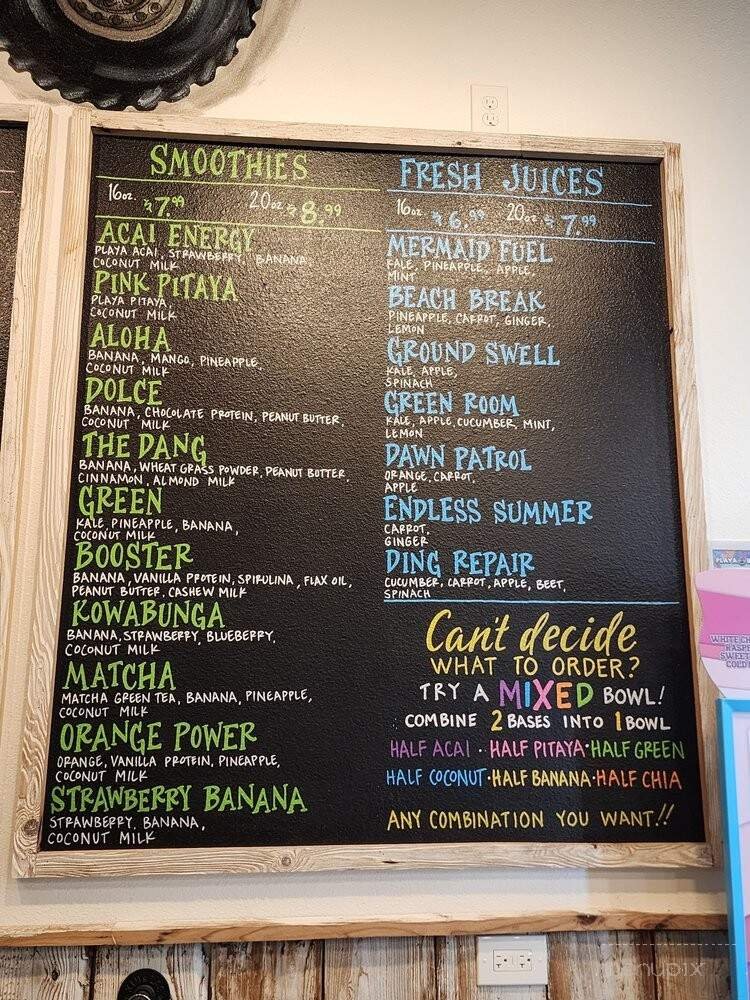 SMOOTHIES
16oz. 7.99 20oz 8.99
ACAI ENERGY
PLAYA ACAI, STRAWBERRY, BANANA,
COCONUT MILK
PINK PITAYA
PLAYA PITAYA,
COCONUT MILK
ALOHA
BANANA, MANGO, PINEAPPLE,
COCONUT MILK
DOLCE
BANANA, CHOCOLATE PROTEIN, PEANUT BUTTER,
COCONUT MILK
THE DANG
BANANA, WHEAT GRASS POWDER, PEANUT BUTTER,
CINNAMON, ALMOND MILK
GREEN
KALE, PINEAPPLE, BANANA,
COCONUT MILK
BOOSTER
BANANA, VANILLA PROTEIN, SPIRULINA, FLAX OIL,
PEANUT BUTTER, CASHEW MILK
KOWABUNGA
BANANA, STRAWBERRY, BLUEBERRY,
COCONUT MILK
MATCHA
MATCHA GREEN TEA, BANANA, PINEAPPLE,
COCONUT MILK
ORANGE POWER
ORANGE, VANILLA PROTEIN, PINEAPPLE,
COCONUT MILK
STRAWBERRY BANANA
STRAWBERRY, BANANA,
COCONUT MILK
FRESH JUICES
16oz 6.99 20oz 7.99
MERMAID FUEL
KALE, PINEAPPLE, APPLE,
MINT
BEACH BREAK
PINEAPPLE, CARROT, GINGER,
LEMON
GROUND SWELL
KALE, APPLE,
SPINACH
GREEN ROOM
KALE, APPLE, CUCUMBER, MINT,
LEMON
DAWN PATROL
ORANGE, CARROT,
APPLE
ENDLESS SUMMER
CARROT,
GINGER
DING REPAIR
CUCUMBER, CARROT, APPLE, BEET,
SPINACH
Can't decide
WHAT TO ORDER?
TRY A MIXED BOWL!
COMBINE 2 BASES INTO 1 BOWL
HALF ACAI · HALF PITAYA · HALF GREEN
HALF COCONUT · HALF BANANA · HALF CHIA
ANY COMBINATION YOU WANT!!
PLAYA
WHITE
SWEET
COLD
menupix